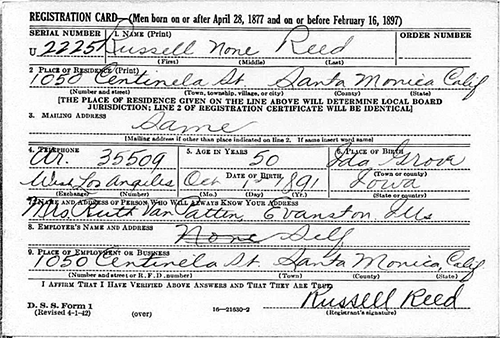 REGISTRATION CARD—(Men born on or after April 28, 1877 and on or before February 16, 1897)
SERIAL NUMBER 1. NAME (Print) ORDER NUMBER
U 2225 Russell None Reed
(First) (Middle) (Last)
2. PLACE OF RESIDENCE (Print)
1050 Centinela St. Santa Monica Calif
(Number and street) (Town, township, village, or city) (County) (State)
[THE PLACE OF RESIDENCE GIVEN ON THE LINE ABOVE WILL DETERMINE LOCAL BOARD
JURISDICTION; LINE 2 OF REGISTRATION CERTIFICATE WILL BE IDENTICAL]
3. MAILING ADDRESS
Same
[Mailing address if other than place indicated on line 2. If same insert word same]
4. TELEPHONE 5. AGE IN YEARS 6. PLACE OF BIRTH
Ar. 35509 50 Ida Grove
DATE OF BIRTH (Town or county)
West Los Angeles Oct 1 1891 Iowa
(Exchange) (Number) (Mo.) (Day) (Yr.) (State or country)
7. NAME AND ADDRESS OF PERSON WHO WILL ALWAYS KNOW YOUR ADDRESS
Mrs. Ruth Van Patten, Evanston, Ills
8. EMPLOYER'S NAME AND ADDRESS
None Self
9. PLACE OF EMPLOYMENT OR BUSINESS
1050 Centinela St. Santa Monica, Calif
(Number and street or R. F. D. number) (Town) (County) (State)
I AFFIRM THAT I HAVE VERIFIED ABOVE ANSWERS AND THAT THEY ARE TRUE.
Russell Reed
D. S. S. Form 1
(Revised 4-1-42) (over) 16—21630-2 (Registrant's signature)